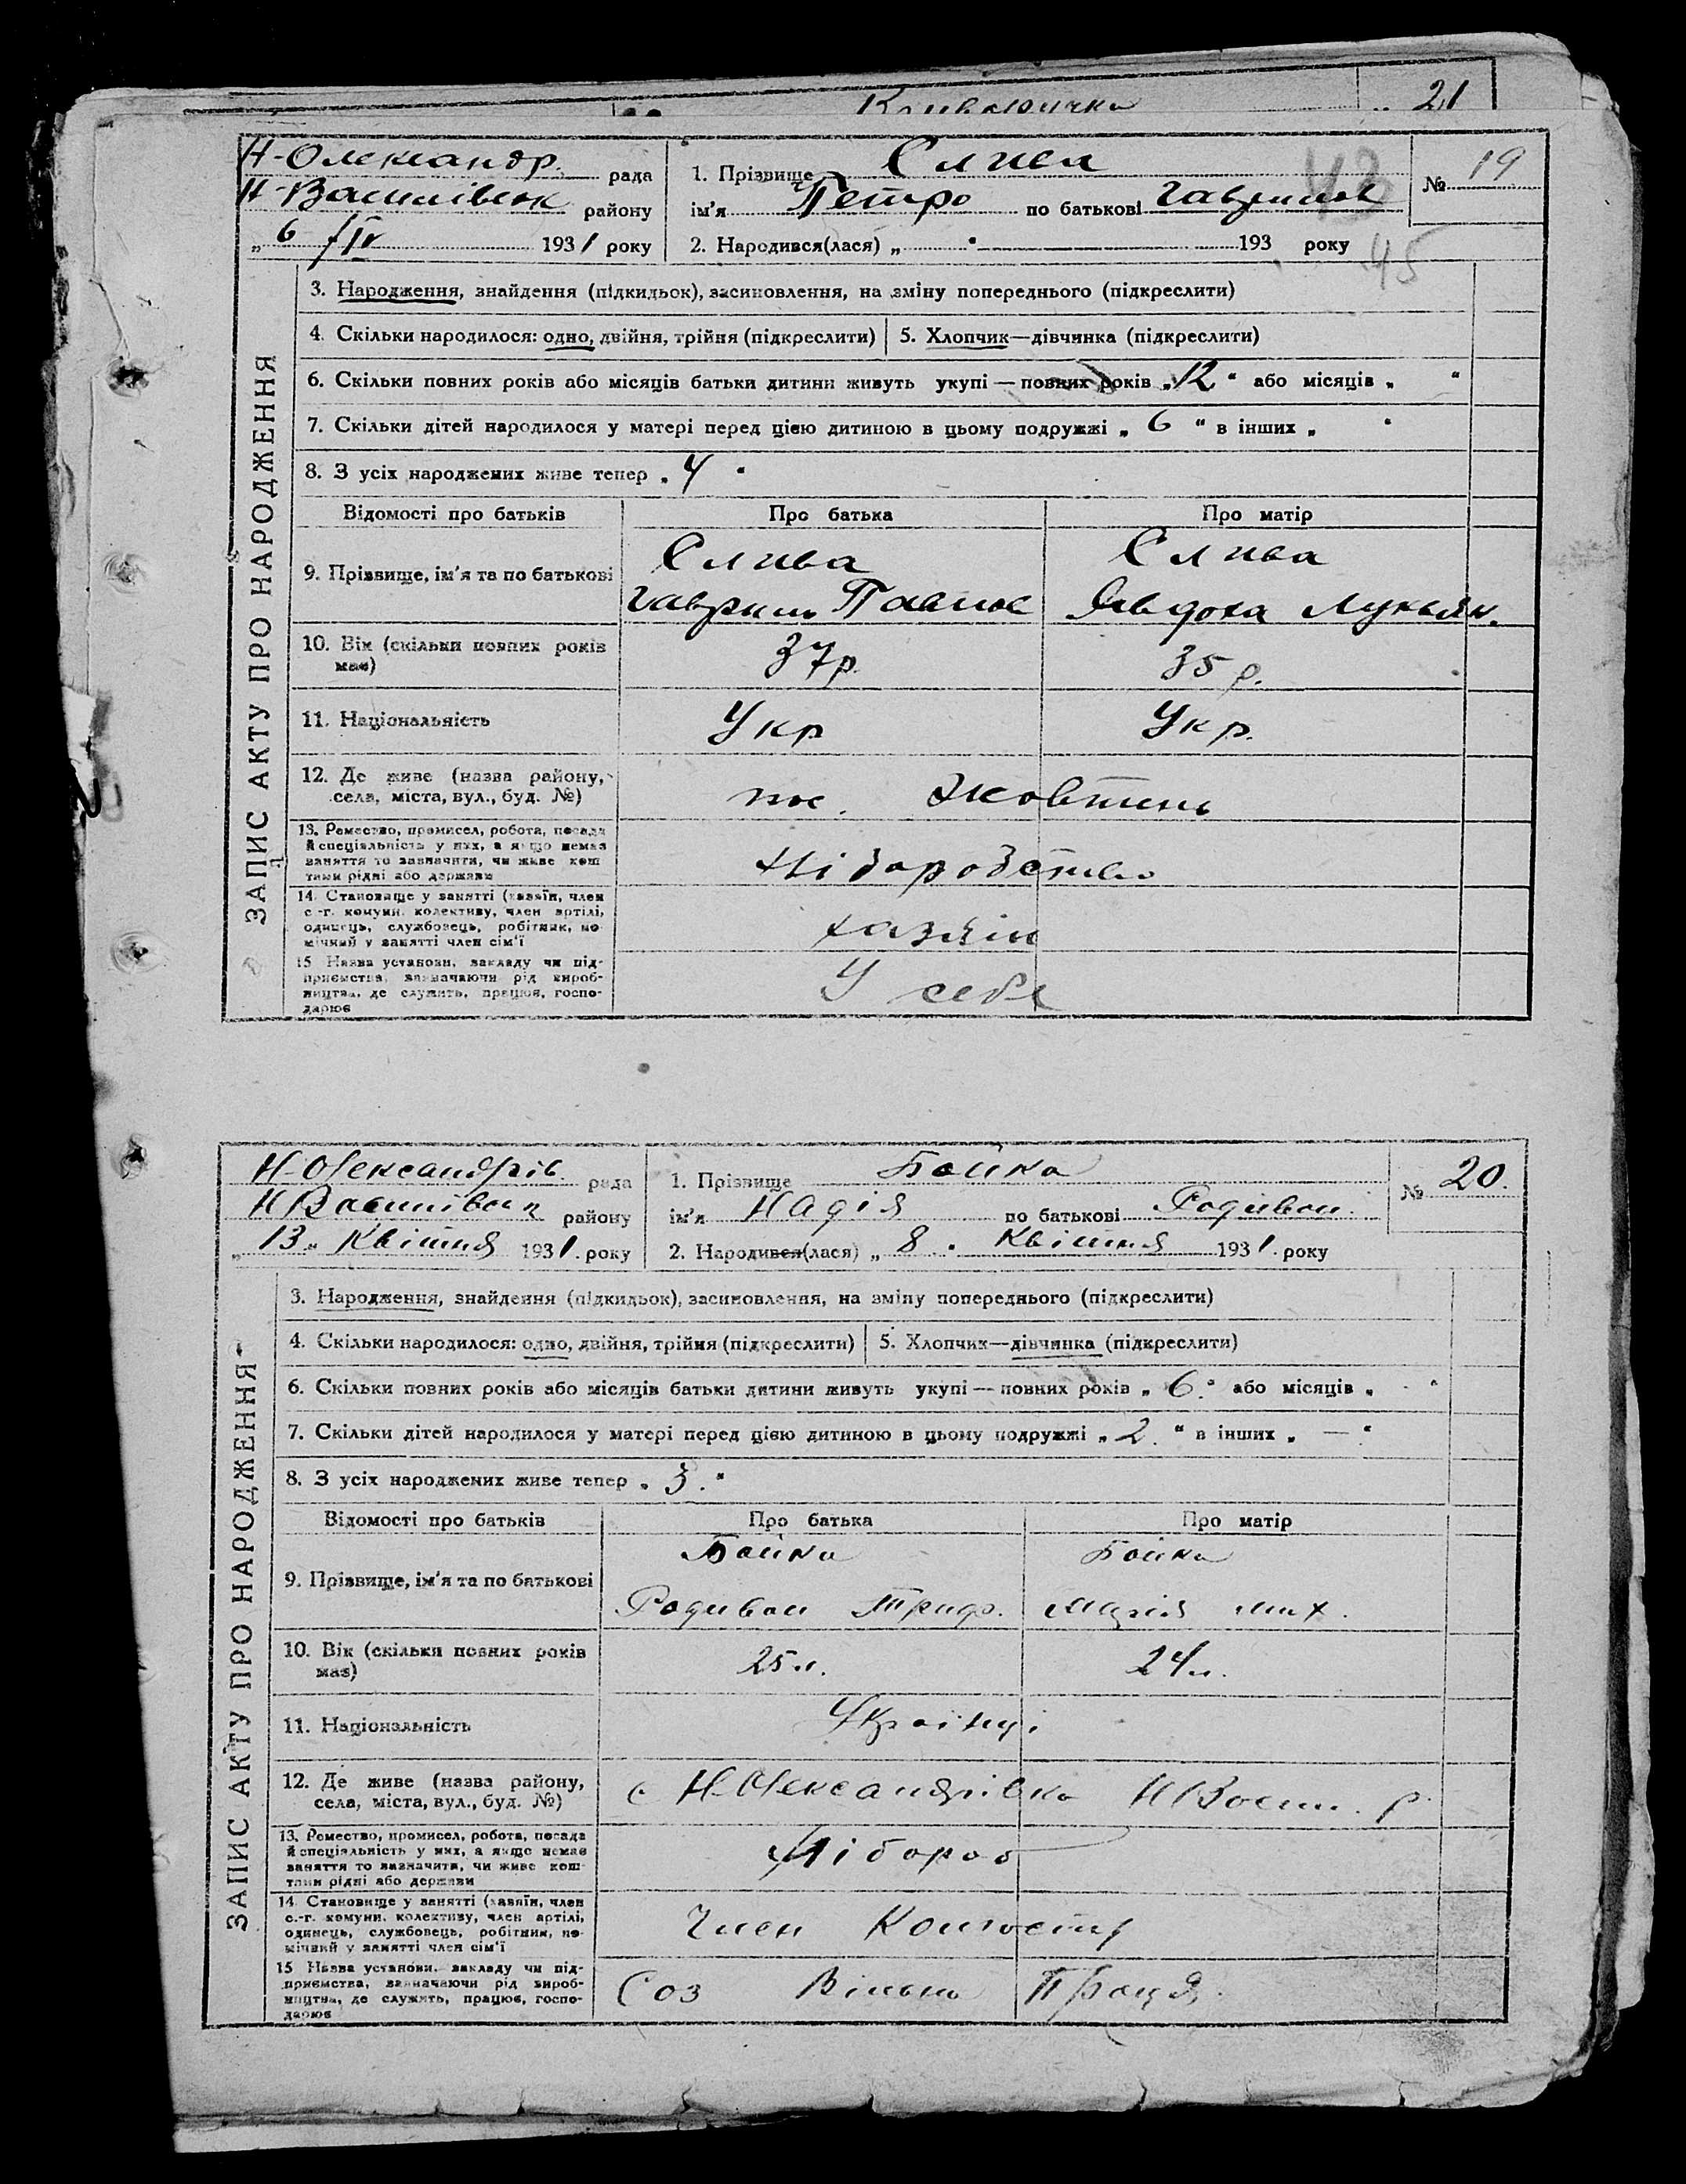 21
Н-Олександр. рада
Н-Василівськ району
„ 6 /IV 1931 року
1. Прізвище Слива
ім'я Петро по батькові Гаврилов
2. Народився(лася) „ " — 193 року
№ 19
43
45
ЗАПИС АКТУ ПРО НАРОДЖЕННЯ
3. Народження, знайдення (підкидьок), засиновлення, на зміну попереднього (підкреслити)
4. Скільки народилося: одно, двійня, трійня (підкреслити) 5. Хлопчик—дівчинка (підкреслити)
6. Скільки повних років або місяців батьки дитини живуть укупі — повних років „ 12 " або місяців „ "
7. Скільки дітей народилося у матері перед цією дитиною в цьому подружжі „ 6 " в інших „ "
8. З усіх народжених живе тепер „ 4 "
Відомості про батьків Про батька Про матір
9. Прізвище, ім'я та по батькові
Слива Слива
Гаврило Павлов Явдоха Лукьян.
10. Вік (скільки повних років має) 37 р. 35 р.
11. Національність Укр Укр.
12. Де живе (назва району, села, міста, вул., буд. №) пос. Жовтень
13. Ремество, промисел, робота, посада
й спеціальність у них, а якщо немає
заняття то зазначити, чи живе кош
тами рідні або держави
Хліборобство
14. Становище у занятті (хазяїн, член
с.-г. комуни, колективу, член артілі,
одинець, службовець, робітник, по-
мічний у занятті член сім'ї
хазяін
15 Назва установи, закладу чи під-
приємства, зазначаючи рід вироб-
ництва, де служить, працює, госпо-
дарює
У себе
Н-Олександрів. рада
Н Василівськ району
„ 13 „ Квітня 1931. року
1. Прізвище Бойко
ім'я Надія по батькові Родивон.
2. Народився(лася) „ 8 „ Квітня 1931. року
№ 20.
ЗАПИС АКТУ ПРО НАРОДЖЕННЯ
3. Народження, знайдення (підкидьок), засиновлення, на зміну попереднього (підкреслити)
4. Скільки народилося: одно, двійня, трійня (підкреслити) 5. Хлопчик—дівчинка (підкреслити)
6. Скільки повних років або місяців батьки дитини живуть укупі — повних років „ 6. " або місяців „ - "
7. Скільки дітей народилося у матері перед цією дитиною в цьому подружжі „ 2. " в інших „ — "
8. З усіх народжених живе тепер „ 3. "
Відомості про батьків Про батька Про матір
9. Прізвище, ім'я та по батькові
Бойко Бойко
Родивон Марія Мих.
10. Вік (скільки повних років має) 25 л. 24 л.
11. Національність Українці
12. Де живе (назва району, села, міста, вул., буд. №) с Н-Олександрівка Н Васил. р.
13. Ремество, промисел, робота, посада
й спеціальність у них, а якщо немає
заняття то зазначити, чи живе кош-
тами рідні або держави
Хлібороб
14. Становище у занятті (хазяїн, член
с.-г. комуни, колективу, член артілі,
одинець, службовець, робітник, по-
мічний у занятті член сім'ї
Член
15 Назва установи, закладу чи під-
приємства, зазначаючи рід вироб-
ництва, де служить, працює, госпо-
дарює
Соз Вільна Праця.